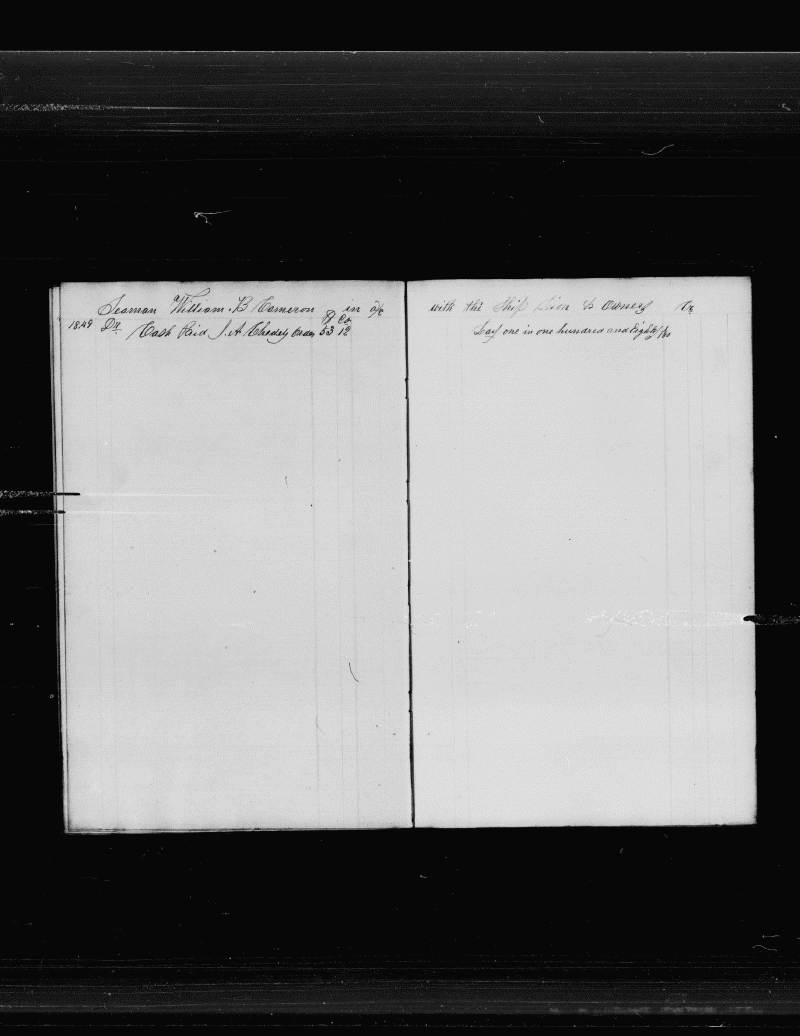 Seaman William. B Cameron $ Cs in a/c
1849 Dr Cash Paid J. A 53 12
with the Ship Lion & Owners Cr
Lay one in one hundred and Eighty